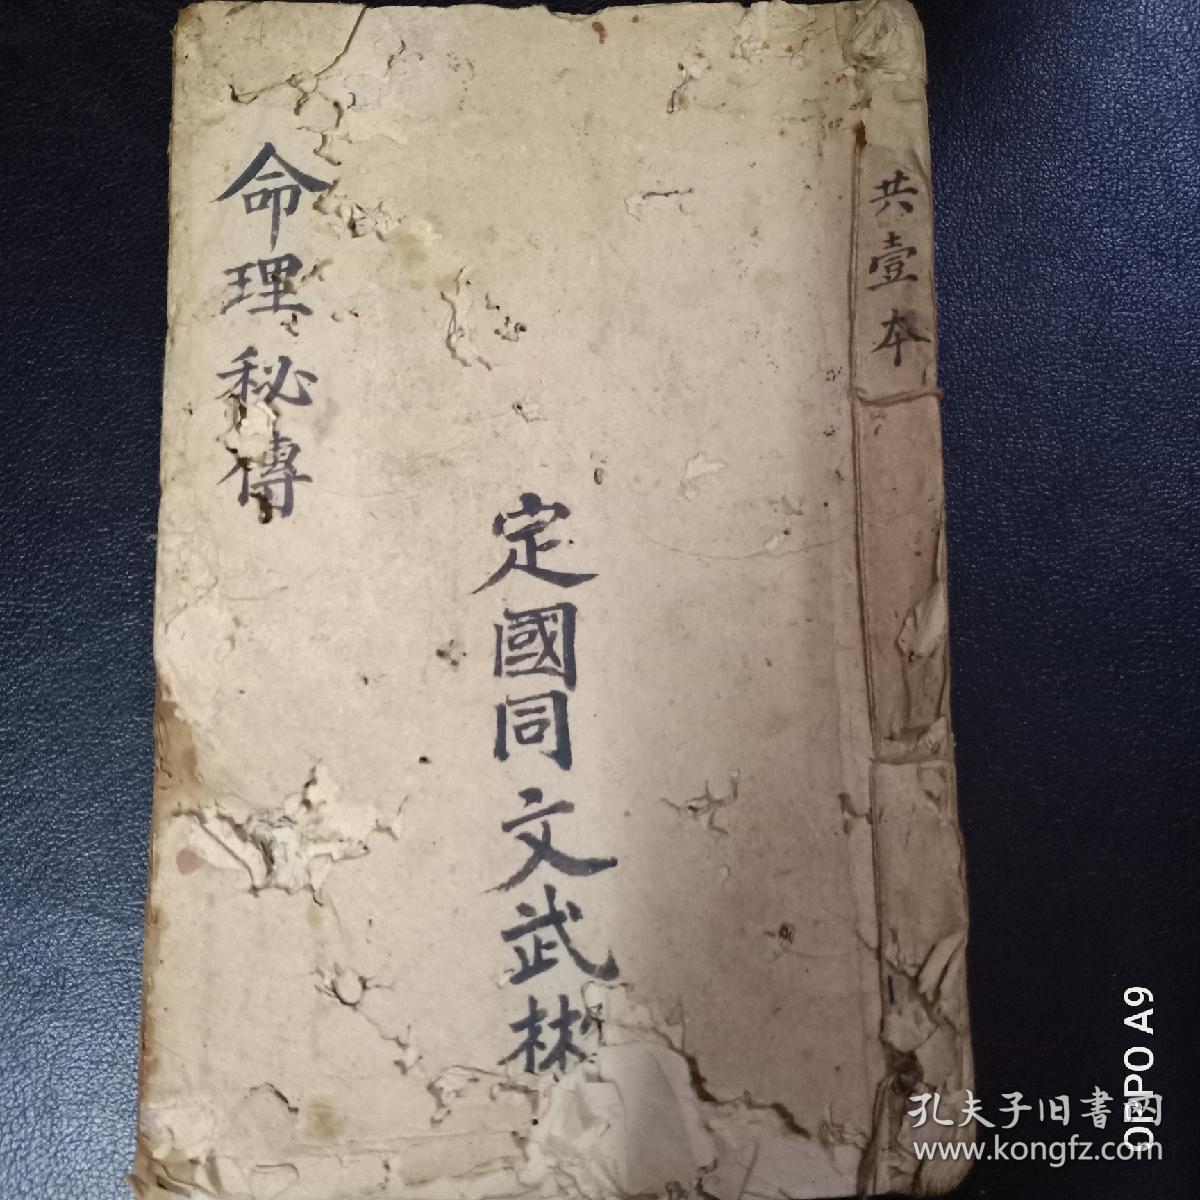 共壹本
定國同文武彬
命理秘傳
OPPO A9
孔夫子旧書网
www.kongfz.com